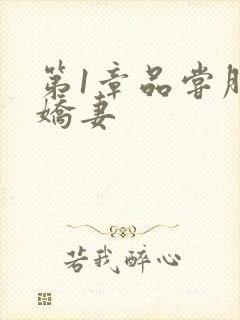 第1章品尝
娇妻
若我醉心